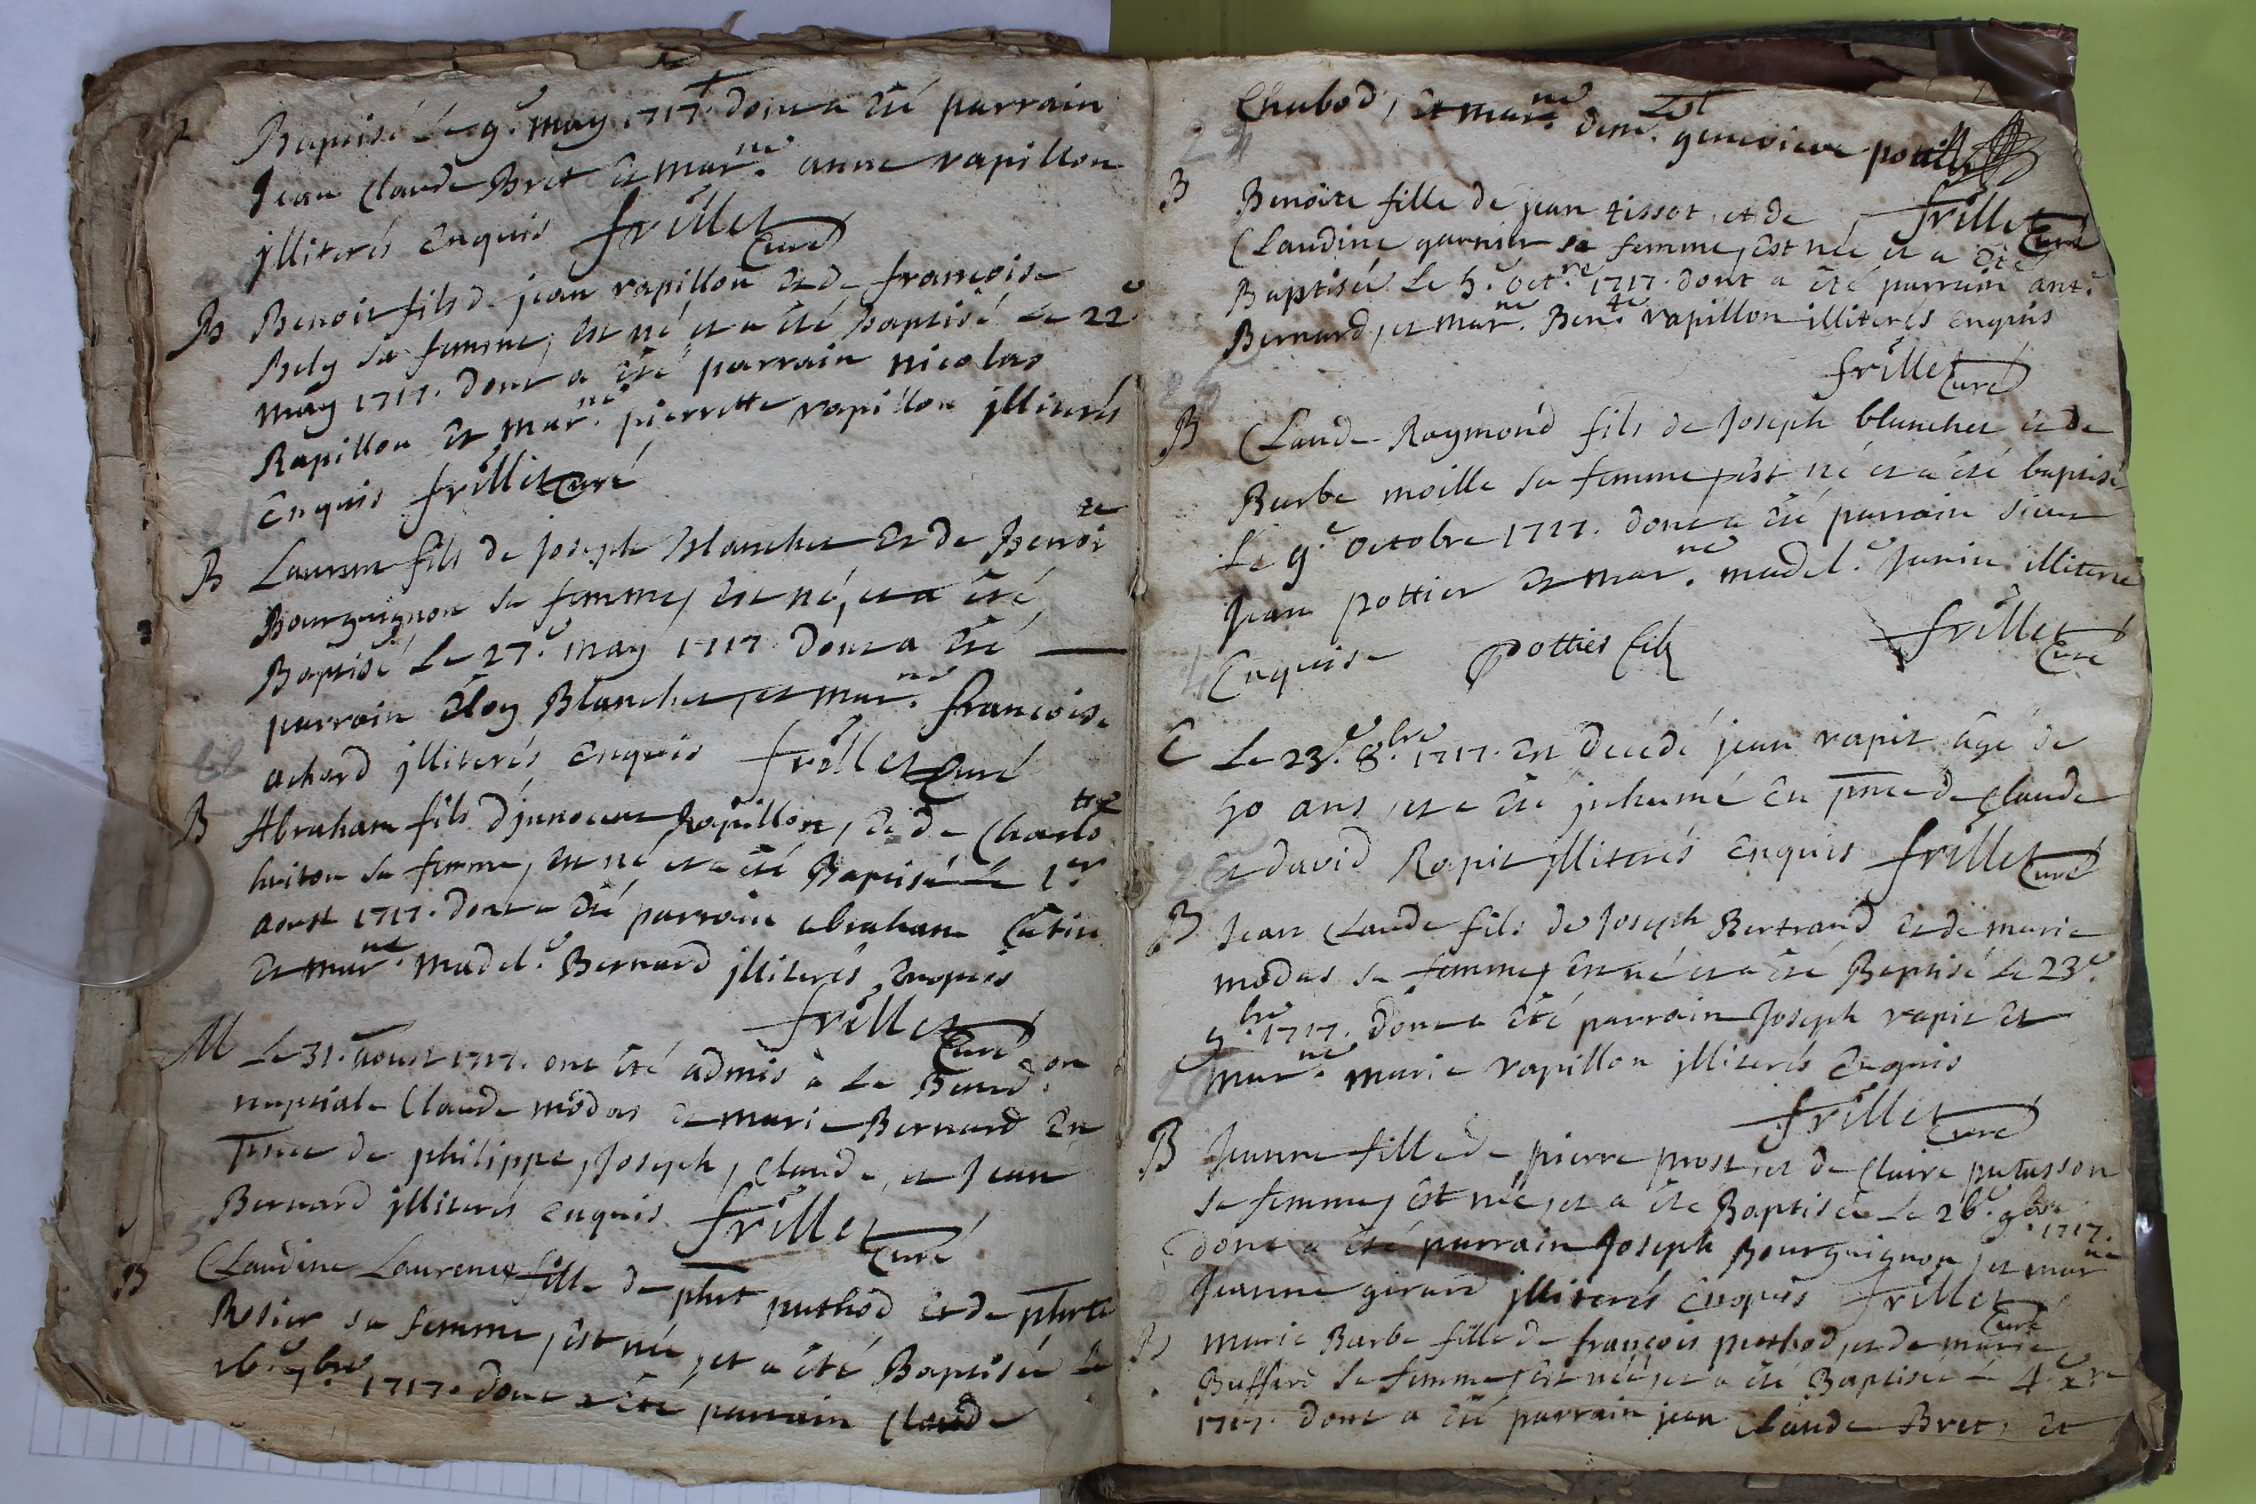 Baptisé le 9.e may 1717. dont a été parrain
Jean Claude Bret et mar.ne anne rapillon
jlliterés enquis frillet
Curé
B Benoit fils de jean rapillon et de françoise
Bely sa femme, est né et a été baptisé le 22.e
may 1717. dont a été parrain nicolas
Rapillon et mar.ne pierrette rapillon jlliterés
enquis frillet Curé
B Laurent fils de joseph blanchet et de Benoite
Bourguignon sa femme, est né, et a été
Baptisé le 27.e may 1717. dont a été
parrain éloy Blanchet, et mar.ne françoise
achard jlliterés enquis frillet Curé
B Abraham fils d'jnnocent Rapillon, et de Charlotte
huiton sa femme, est né et a été Baptisé le 1.er
aoust 1717. dont a été parrain abraham Catin
et mar.ne madel.e Bernard jlliterés enquis
frillet
Curé
M Le 31. aoust 1717. ont été admis à la Bened.on
nuptiale Claude modas et marie Bernard en
pnce de philippe, joseph, claude, et jean
Bernard jlliterés enquis. frillet
Curé
B Claudine Laurence fille de phrt puthod et de phrte
Rosier sa femme, est née, et a été Baptisée le
16.e 7.bre 1717. dont a été parrain claude
Chabod, et mar.ne dem.lle genevieve pottier
B Benoite fille de jean tissot, et de frillet
Curé
Claudine garnier sa femme, est née et a été
Baptisée le 5.e oct.re 1717. dont a été parrain ant.e
Bernard, et mar.ne Ben.te rapillon illiterés enquis
frillet
Curé
B Claude Raymond fils de Joseph blanchet et de
Barbe moille sa femme, est né et a été baptisé
le 9.e octobre 1717. dont a été parrain sieur
Jean pottier et mar.ne madel.e Janin illiterée
Enquise pottier fils frillet
Curé
E Le 23.e 8.bre 1717. est decedé jean rapit âgé de
50 ans, et a été jnhumé en pnce de Claude
et david Rapit jlliterés enquis frillet
Curé
B Jean Claude fils de Joseph Bertrand et de marie
modas sa femme, est né et a été Baptisé le 23.e
9.bre 1717. dont a été parrain Joseph rapit et
mar.ne marie rapillon jlliterés enquis
frillet
Curé
B Jeanne fille de pierre prost, et de Claire putasson
sa femme, est née, et a été Baptisée le 26.e 9.bre 1717.
dont a été parrain Joseph Bourguignon, et mar.ne
Jeanne girard jlliterés enquis frillet
Curé
B marie Barbe fille de françois puthod, et de marie
Buffard sa femme, est née, et a été Baptisée le 4.e xre
1717. dont a été parrain jean Claude Bret, et